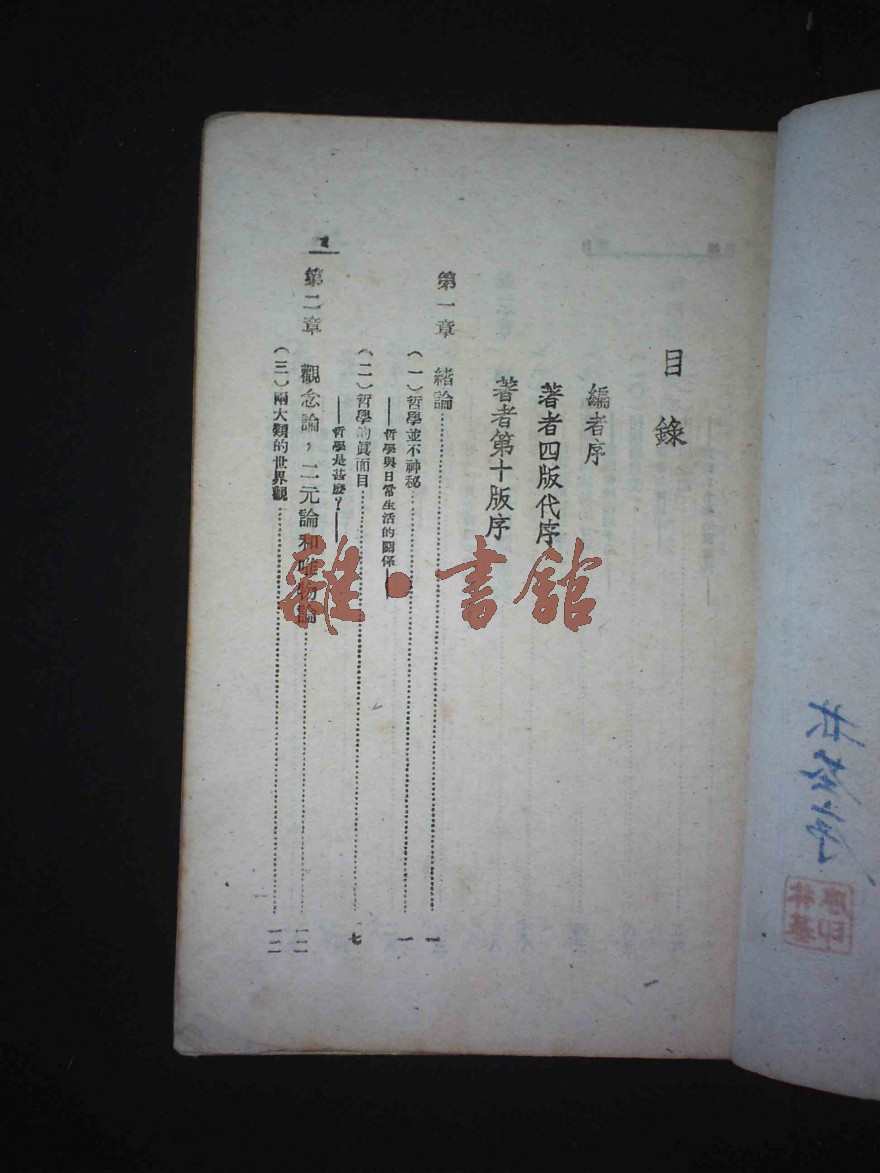 目錄
編者序
著者四版代序
著者第十版序
第一章 緒論……一
(一)哲學並不神秘……一
——哲學與日常生活的關係——
(二)哲學的眞面目……七
——哲學是甚麼?——
第二章 觀念論,二元論和唯物論……一二
(三)兩大類的世界觀……一二
雜·書館